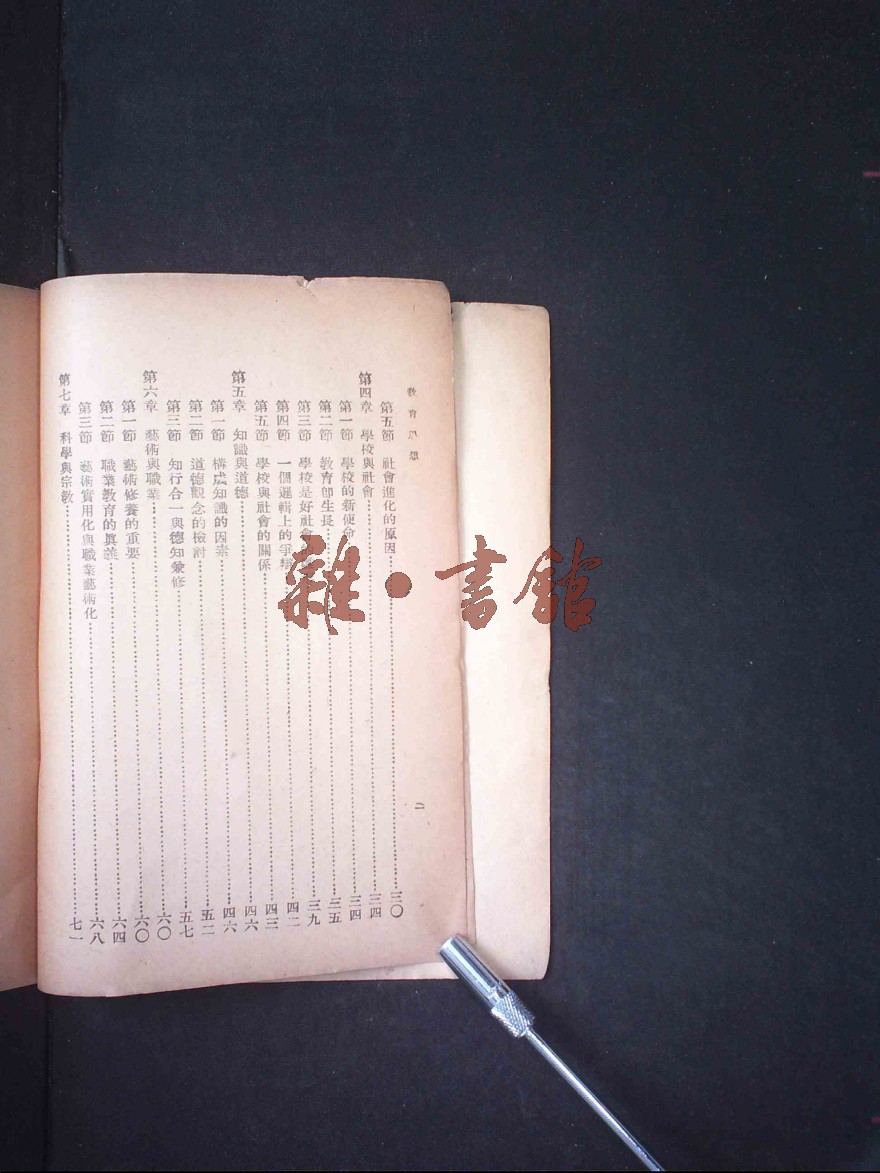 教育思想
第五節 社會進化的原因……三〇
第四章 學校與社會……三四
第一節 學校的新使命……三四
第二節 教育卽生長……三五
第三節 學校是好社會……三九
第四節 一個邏輯上的爭辯……四二
第五節 學校與社會的關係……四三
第五章 知識與道德……四六
第一節 構成知識的因素……四六
第二節 道德觀念的檢討……五二
第三節 知行合一與德知兼修……五七
第六章 藝術與職業……六〇
第一節 藝術修養的重要……六〇
第二節 職業教育的眞義……六四
第三節 藝術實用化與職業藝術化……六八
第七章 科學與宗教……七一
二
雜·書館